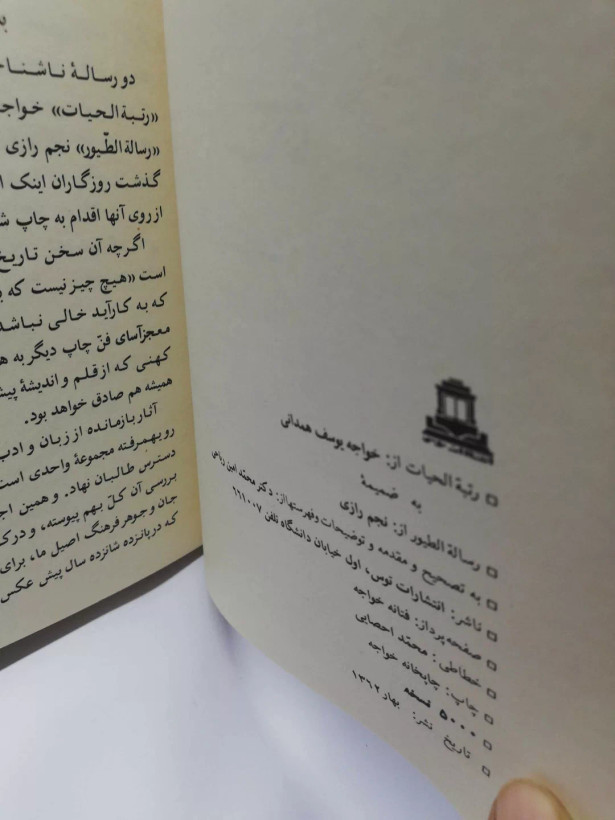 رتبة الحیات از: خواجه یوسف همدانی
به ضمیمهٔ
رسالة الطیور از: نجم رازی
به تصحیح و مقدمه و توضیحات وفهرستها از: دکتر محمّد امین ریاحی
ناشر: انتشارات توس، اول خیابان دانشگاه تلفن ۶۶۱۰۰۷
صفحه‌پرداز: فتانه خواجه
خطاطی: محمّد احصایی
چاپ: چاپخانه خواجه
۵۰۰۰ نسخه
تاریخ نشر: بهار ۱۳۶۲
دو رسالهٔ ناشناخ
«رتبة الحیات» خواجه
«رسالة الطّیور» نجم رازی
گذشت روزگاران اینک ا
از روی آنها اقدام به چاپ ش
اگرچه آن سخن تاریخ
است «هیچ چیز نیست که ب
که به کارآید خالی نباشد
معجزآسای فنّ چاپ دیگر به ه
کهنی که از قلم و اندیشهٔ پیش
همیشه هم صادق خواهد بود.
آثار بازمانده از زبان و ادب
رویهمرفته مجموعهٔ واحدی است
دسترس طالبان نهاد. و همین اج
بررسی آن کلّ بهم پیوسته، و درک
جان و جوهر فرهنگ اصیل ما، برای
که در پانزده شانزده سال پیش عکس